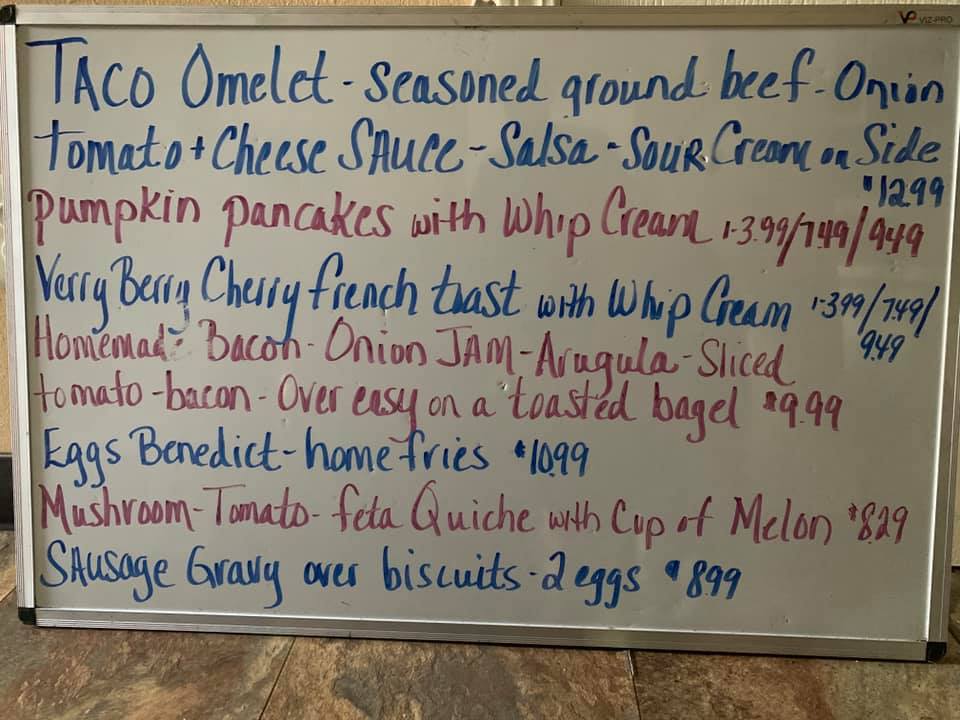 VP VIZ-PRO
TACO Omelet - seasoned ground beef - Onion
Tomato + Cheese SAUCE - Salsa - SOUR Cream on Side
$12.99
pumpkin pancakes with Whip Cream 1-3.99/7.49/9.49
Verry Berry Cherry french toast with Whip Cream 1-3.99/7.49/
9.49
Homemad Bacon - Onion JAM - Arugula - Sliced
tomato - bacon - Over easy on a toasted bagel $9.99
Eggs Benedict - home fries $10.99
Mushroom - Tomato - feta Quiche with Cup of Melon $8.29
SAusage Gravy over biscuits - 2 eggs $8.99